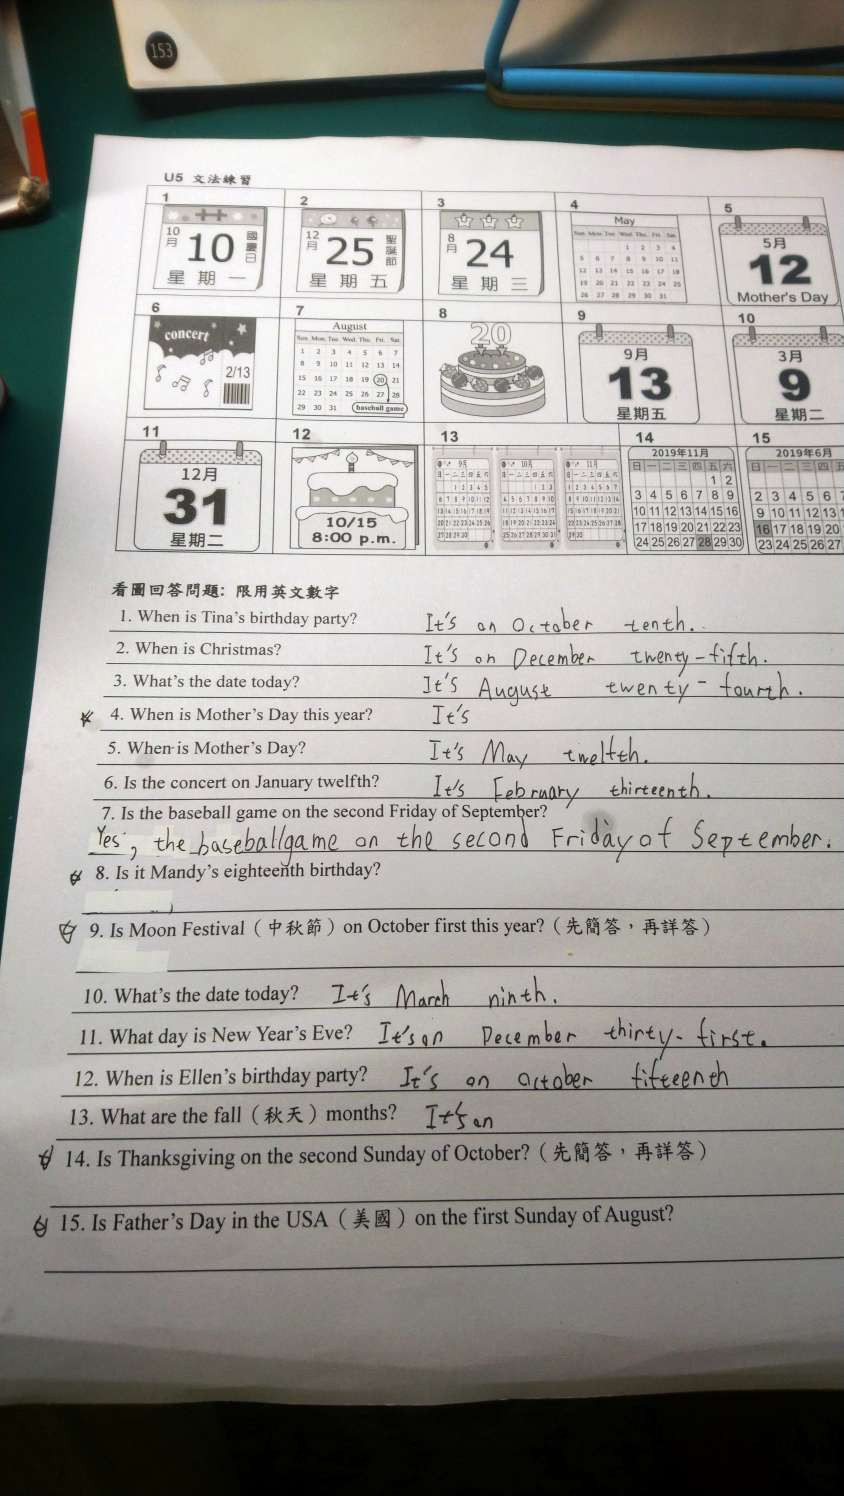 153
U5 文法練習
1 2 3 4 5
10月 10 國慶日 星期一
12月 25 聖誕節 星期五
8月 24 星期三
May
Sun. Mon. Tue. Wed. Thu. Fri. Sat.
1 2 3 4
5 6 7 8 9 10 11
12 13 14 15 16 17 18
19 20 21 22 23 24 25
26 27 28 29 30 31
5月
12
Mother's Day
6 7 8 9 10
concert
2/13
August
Sun. Mon. Tue. Wed. Thu. Fri. Sat.
1 2 3 4 5 6 7
8 9 10 11 12 13 14
15 16 17 18 19 20 21
22 23 24 25 26 27 28
29 30 31 baseball game
20
9月
13
星期五
3月
9
星期二
11 12 13 14 15
12月
31
星期二
10/15
8:00 p.m.
9月 10月 11月
2019年11月
日 一 二 三 四 五 六
1 2
3 4 5 6 7 8 9
10 11 12 13 14 15 16
17 18 19 20 21 22 23
24 25 26 27 28 29 30
2019年6月
日 一 二 三 四 五
2 3 4 5 6 7
9 10 11 12 13
16 17 18 19 20
23 24 25 26 27
看圖回答問題: 限用英文數字
1. When is Tina's birthday party? It's on October tenth.
2. When is Christmas? It's on December twenty-fifth.
3. What's the date today? It's August twenty-fourth.
4. When is Mother's Day this year? It's
5. When is Mother's Day? It's May twelfth.
6. Is the concert on January twelfth? It's February thirteenth.
7. Is the baseball game on the second Friday of September?
Yes, the baseball game on the second Friday of September.
8. Is it Mandy's eighteenth birthday?
9. Is Moon Festival（中秋節）on October first this year?（先簡答，再詳答）
10. What's the date today? It's March ninth.
11. What day is New Year's Eve? It's on December thirty-first.
12. When is Ellen's birthday party? It's on October fifteenth
13. What are the fall（秋天）months? It's on
14. Is Thanksgiving on the second Sunday of October?（先簡答，再詳答）
15. Is Father's Day in the USA（美國）on the first Sunday of August?